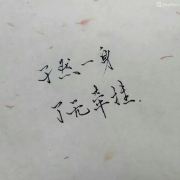 孑然一身
了无牵挂.